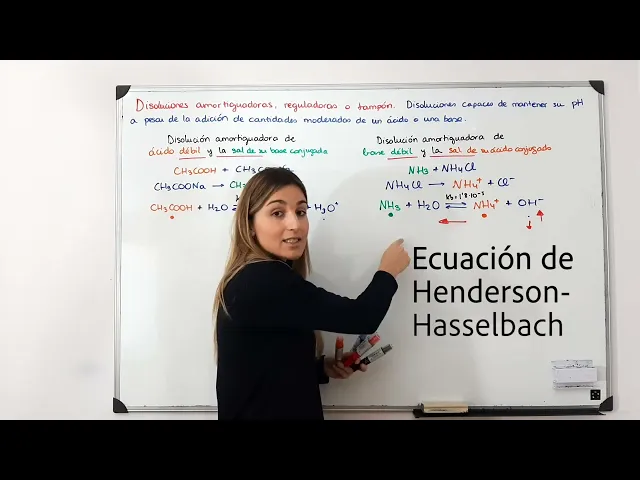 Disoluciones amortiguadoras, reguladoras o tampón. Disoluciones capaces de mantener su pH
a pesar de la adición de cantidades moderadas de un ácido o una base.
Disolución amortiguadora de
ácido débil y la sal de su base conjugada
CH₃COOH + CH₃C
CH₃COONa → CH₃
CH₃COOH + H₂O ⇌ + H₃O⁺
Disolución amortiguadora de
base débil y la sal de su ácido conjugado
NH₃ + NH₄Cl
NH₄Cl → NH₄⁺ + Cl⁻
Kb=1'8·10⁻⁵
NH₃ + H₂O ⇌ NH₄⁺ + OH⁻
Ecuación de
Henderson-
Hasselbach